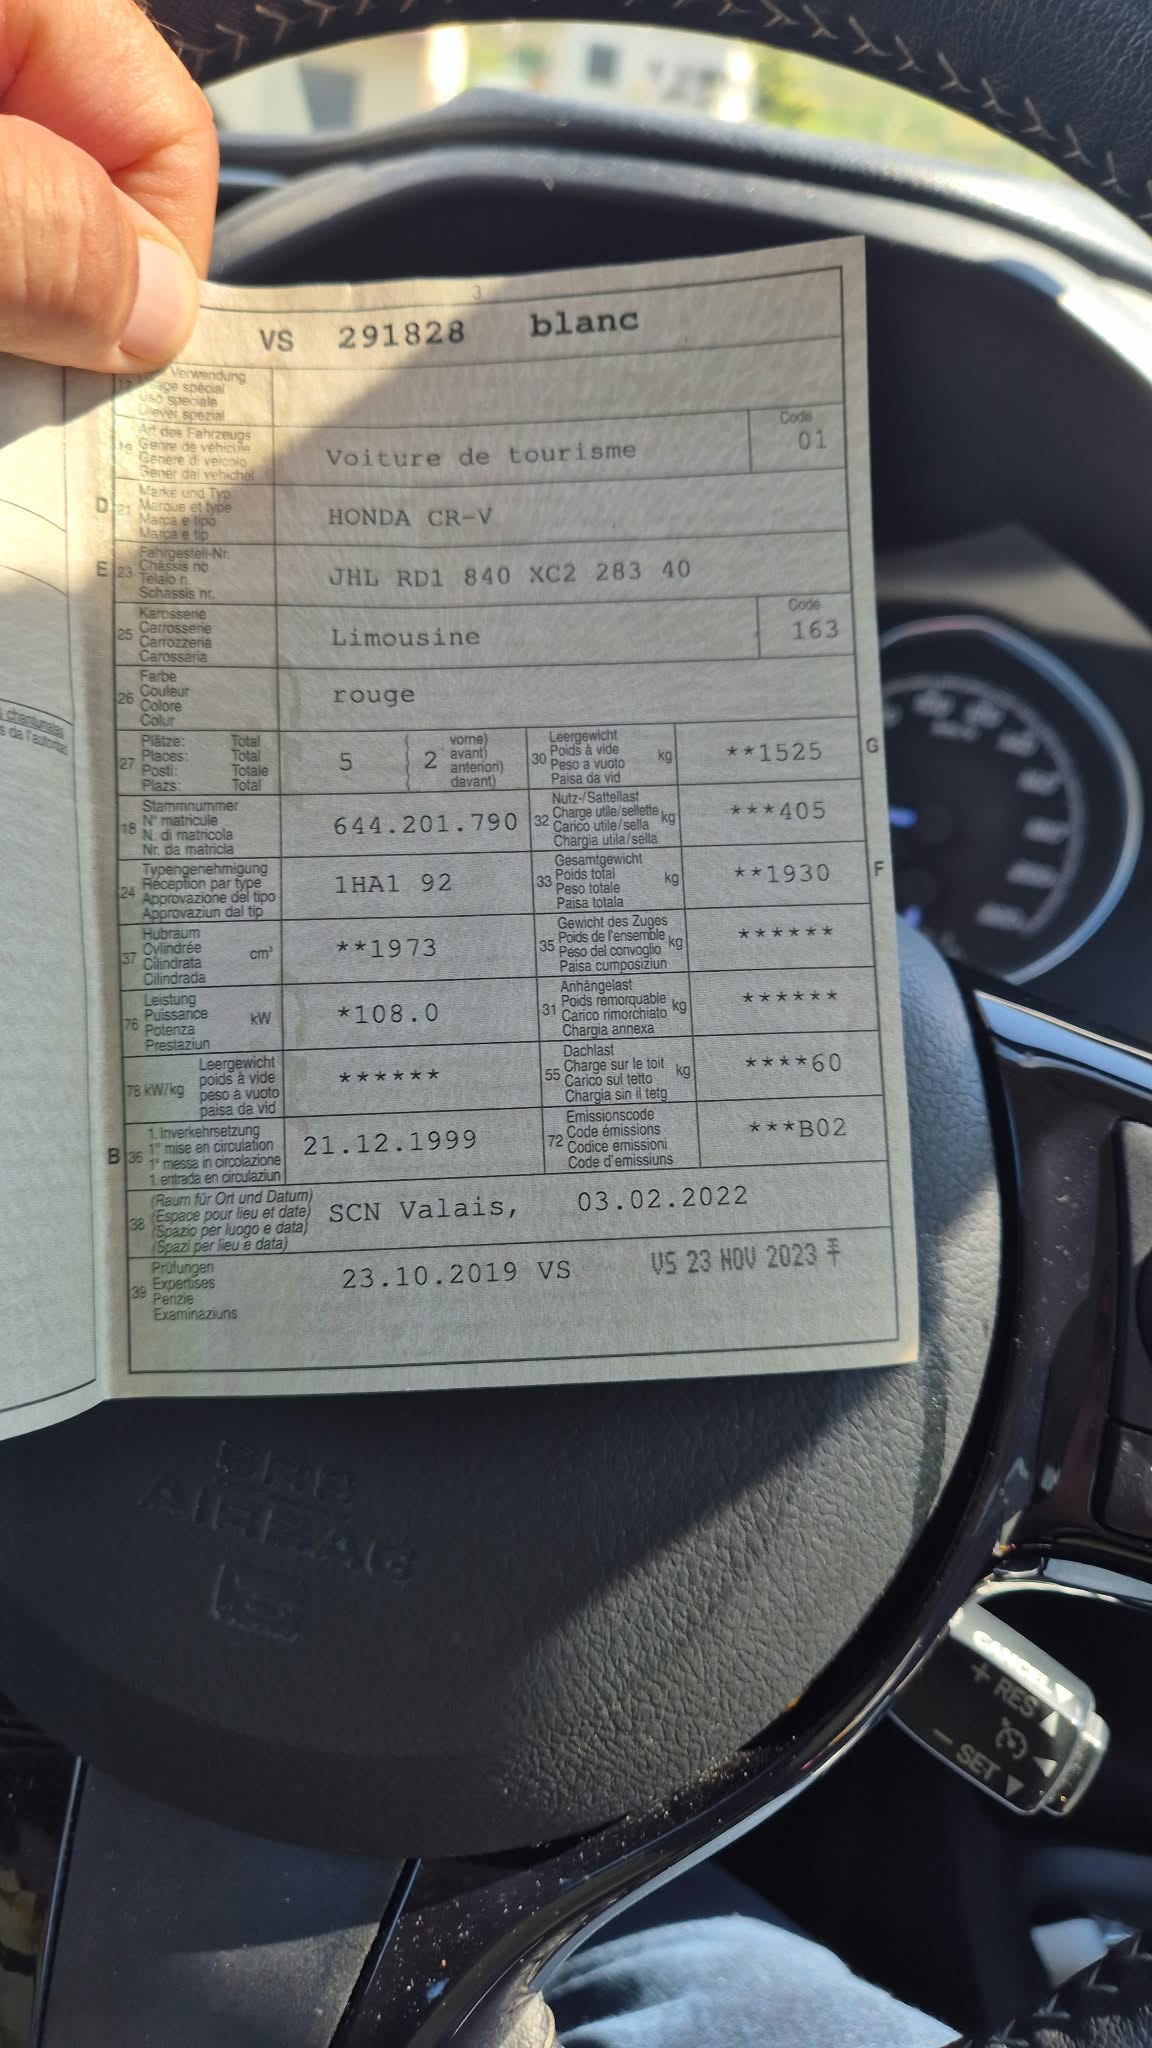 3
VS 291828 blanc
Verwendung
spécial
Uso speciale
Diever spezial
Art des Fahrzeugs
19 Genre de véhicule
Genere di veicolo
Gener dal vehichel
Voiture de tourisme
Code
01
D 21
Marke und Typ
Marque et type
Marca e tipo
Marca e tip
HONDA CR-V
E 23
Fahrgestell-Nr.
Châssis no
Telaio n.
Schassis nr.
JHL RD1 840 XC2 283 40
25
Karosserie
Carrosserie
Carrozzeria
Carossaria
Limousine
Code
163
26
Farbe
Couleur
Colore
Colur
rouge
27
Plätze: Total
Places: Total
Posti: Totale
Plazs: Total
5 ( 2 vorne)
avant)
anteriori)
davant)
30
Leergewicht
Poids à vide
Peso a vuoto
Paisa da vid
kg
**1525
G
18
Stammnummer
N° matricule
N. di matricola
Nr. da matricla
644.201.790
32
Nutz-/Sattellast
Charge utile/sellette
Carico utile/sella
Chargia utila/sella
kg
***405
24
Typengenehmigung
Réception par type
Approvazione del tipo
Approvaziun dal tip
1HA1 92
33
Gesamtgewicht
Poids total
Peso totale
Paisa totala
kg
**1930
F
37
Hubraum
Cylindrée
Cilindrata
Cilindrada
cm³
**1973
35
Gewicht des Zuges
Poids de l'ensemble
Peso del convoglio
Paisa cumposiziun
kg
******
76
Leistung
Puissance
Potenza
Prestaziun
kW
*108.0
31
Anhängelast
Poids remorquable
Carico rimorchiato
Chargia annexa
kg
******
78 kW/kg
Leergewicht
poids à vide
peso a vuoto
paisa da vid
******
55
Dachlast
Charge sur le toit
Carico sul tetto
Chargia sin il tetg
kg
****60
B 36
1. Inverkehrsetzung
1re mise en circulation
1a messa in circolazione
1. entrada en circulaziun
21.12.1999
72
Emissionscode
Code émissions
Codice emissioni
Code d'emissiuns
***B02
38
(Raum für Ort und Datum)
(Espace pour lieu et date)
(Spazio per luogo e data)
(Spazi per lieu e data)
SCN Valais, 03.02.2022
39
Prüfungen
Expertises
Perizie
Examinaziuns
23.10.2019 VS
VS 23 NOV 2023
chantunalas
da l'autoritad
SRS
AIRBAG
CANCEL
+ RES
- SET